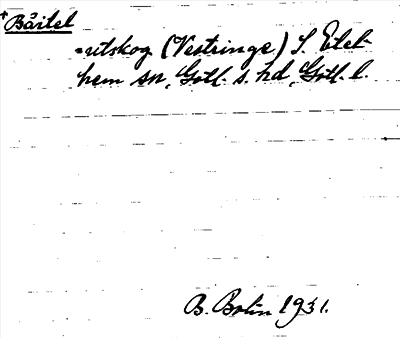 *Båitel
-utskog (Vestringe) S. Etel-
hem sn, Gotl. s. hd, Gotl. l.
B. Bolin 1931.